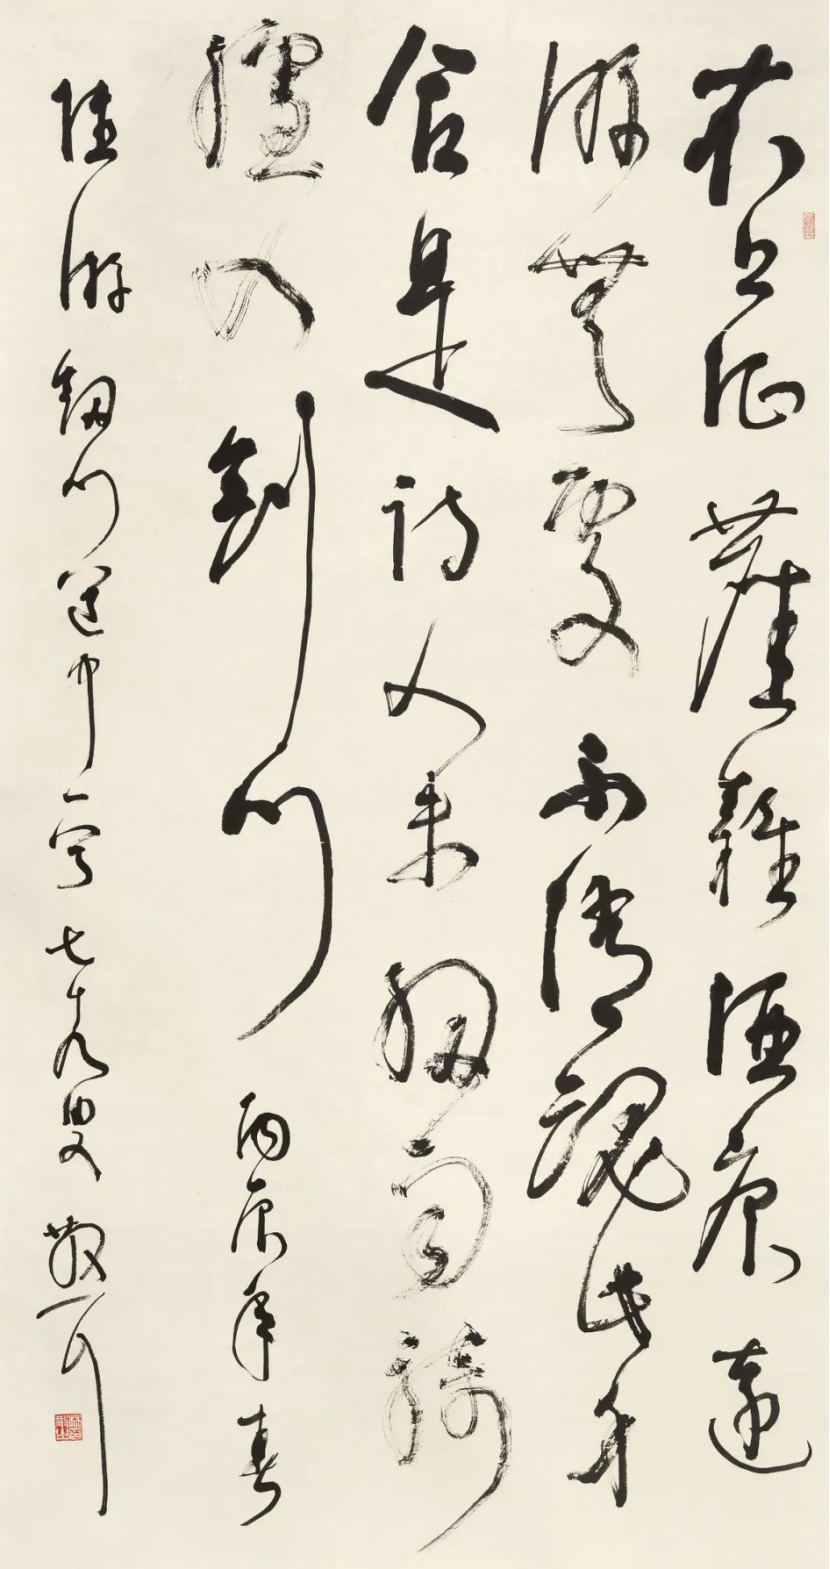 衣上征塵雜酒痕遠
游無處不消魂此身
合是詩人未細雨騎
驢入劍門 丙辰年春
陸游劍門道中一首 七十九叟 散耳